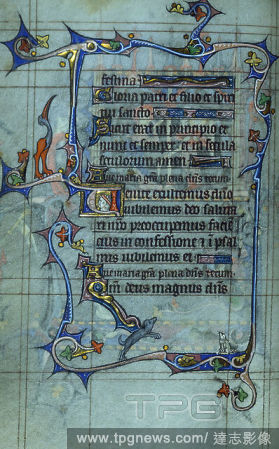 festina
Gloria patri et filio et spiri
tui sancto
Sicut erat in principio et
nunc et semper et in secula
seculorum amen
Aue maria grã plena dñs tecum
Uenite exultemus dño
iubilemus deo salutã
ri nro preoccupemus faciẽ
eius in confessione ⁊ i psal
mis iubilemus ei
Aue maria grã plena dñs tecum
Qm̃ deus magnus dñs
TPG
www.tpgnews.com/ 達志影像